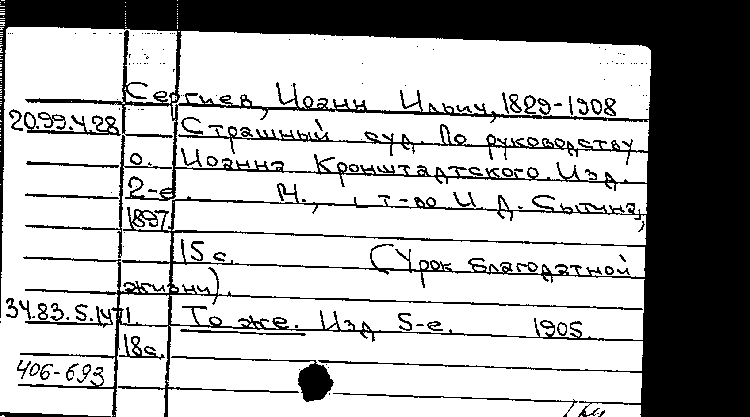 Сергиев, Иоанн Ильич, 1829-1908
20.99.4.28 Страшный суд. По руководству
о. Иоанна Кронштадтского. Изд.
2-е. М., т-во И.Д. Сытина,
1897.
15 с. (Урок благодатной
жизни).
34.83.5.1471. То же. Изд. 5-е. 1905.
18с.
406-693